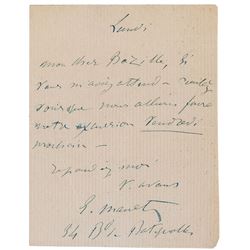 Lundi
mon cher Bazille, si
vous m'aviez attendu
que nous allions faire
notre excursion Vendredi
prochain —
répondez moi
E. Manet
34 Bd des Batignolles